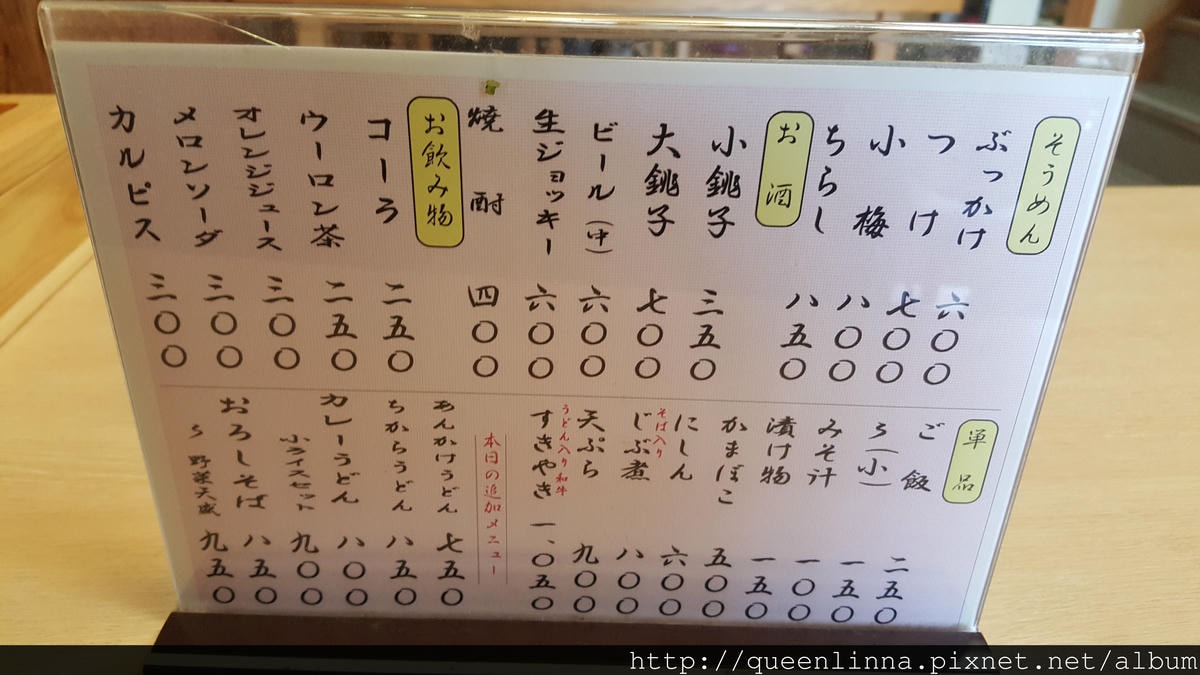 そうめん
ぶっかけ 六〇〇
つけ 七〇〇
小梅 八〇〇
ちらし 八五〇
お酒
小銚子 三五〇
大銚子 七〇〇
ビール(中) 六〇〇
生ジョッキー 六〇〇
焼酎 四〇〇
お飲み物
コーラ 二五〇
ウーロン茶 二五〇
オレンジジュース 三〇〇
メロンソーダ 三〇〇
カルピス 三〇〇
単品
ご飯 二五〇
〃(小) 一五〇
みそ汁 一〇〇
漬け物 一五〇
かまぼこ 五〇〇
にしん 六〇〇
そば入り
じぶ煮 八〇〇
天ぷら 九〇〇
うどん入り和牛
すきやき 一、〇五〇
本日の追加メニュー
あんかけうどん 七五〇
ちからうどん 八五〇
カレーうどん 八〇〇
小ライスセット 九〇〇
おろしそば 八五〇
〃 野菜天盛 九五〇
http://queenlinna.pixnet.net/album